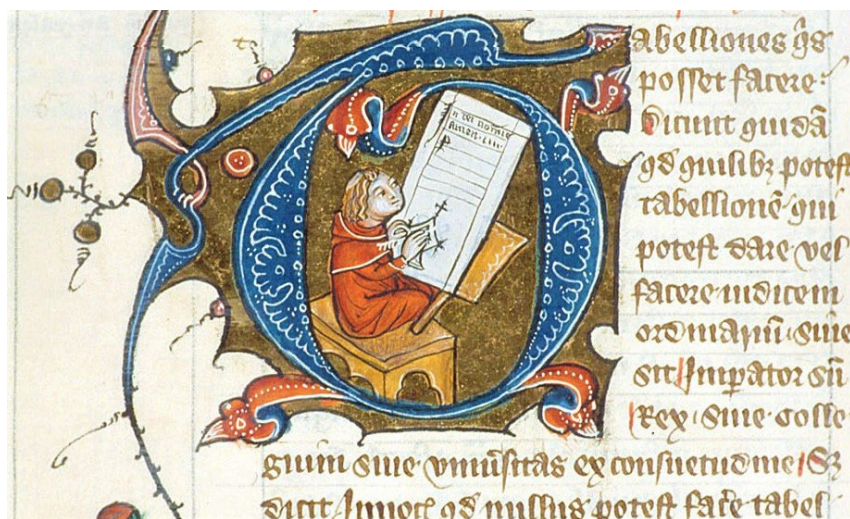 Tabelliones q̄s
posset facere·
Dicunt quidā
qd quilibꝫ potest
tabellionē qui
potest dare vel
facere iudicem
ordinariū siue
sit Impator siū
Rex· Siue Colle
gium siue vniūsitas ex consuetudine Sꝫ
dicit Innoc̄ qd nullus potest fac̄e tabel
n dei nomie
Amen